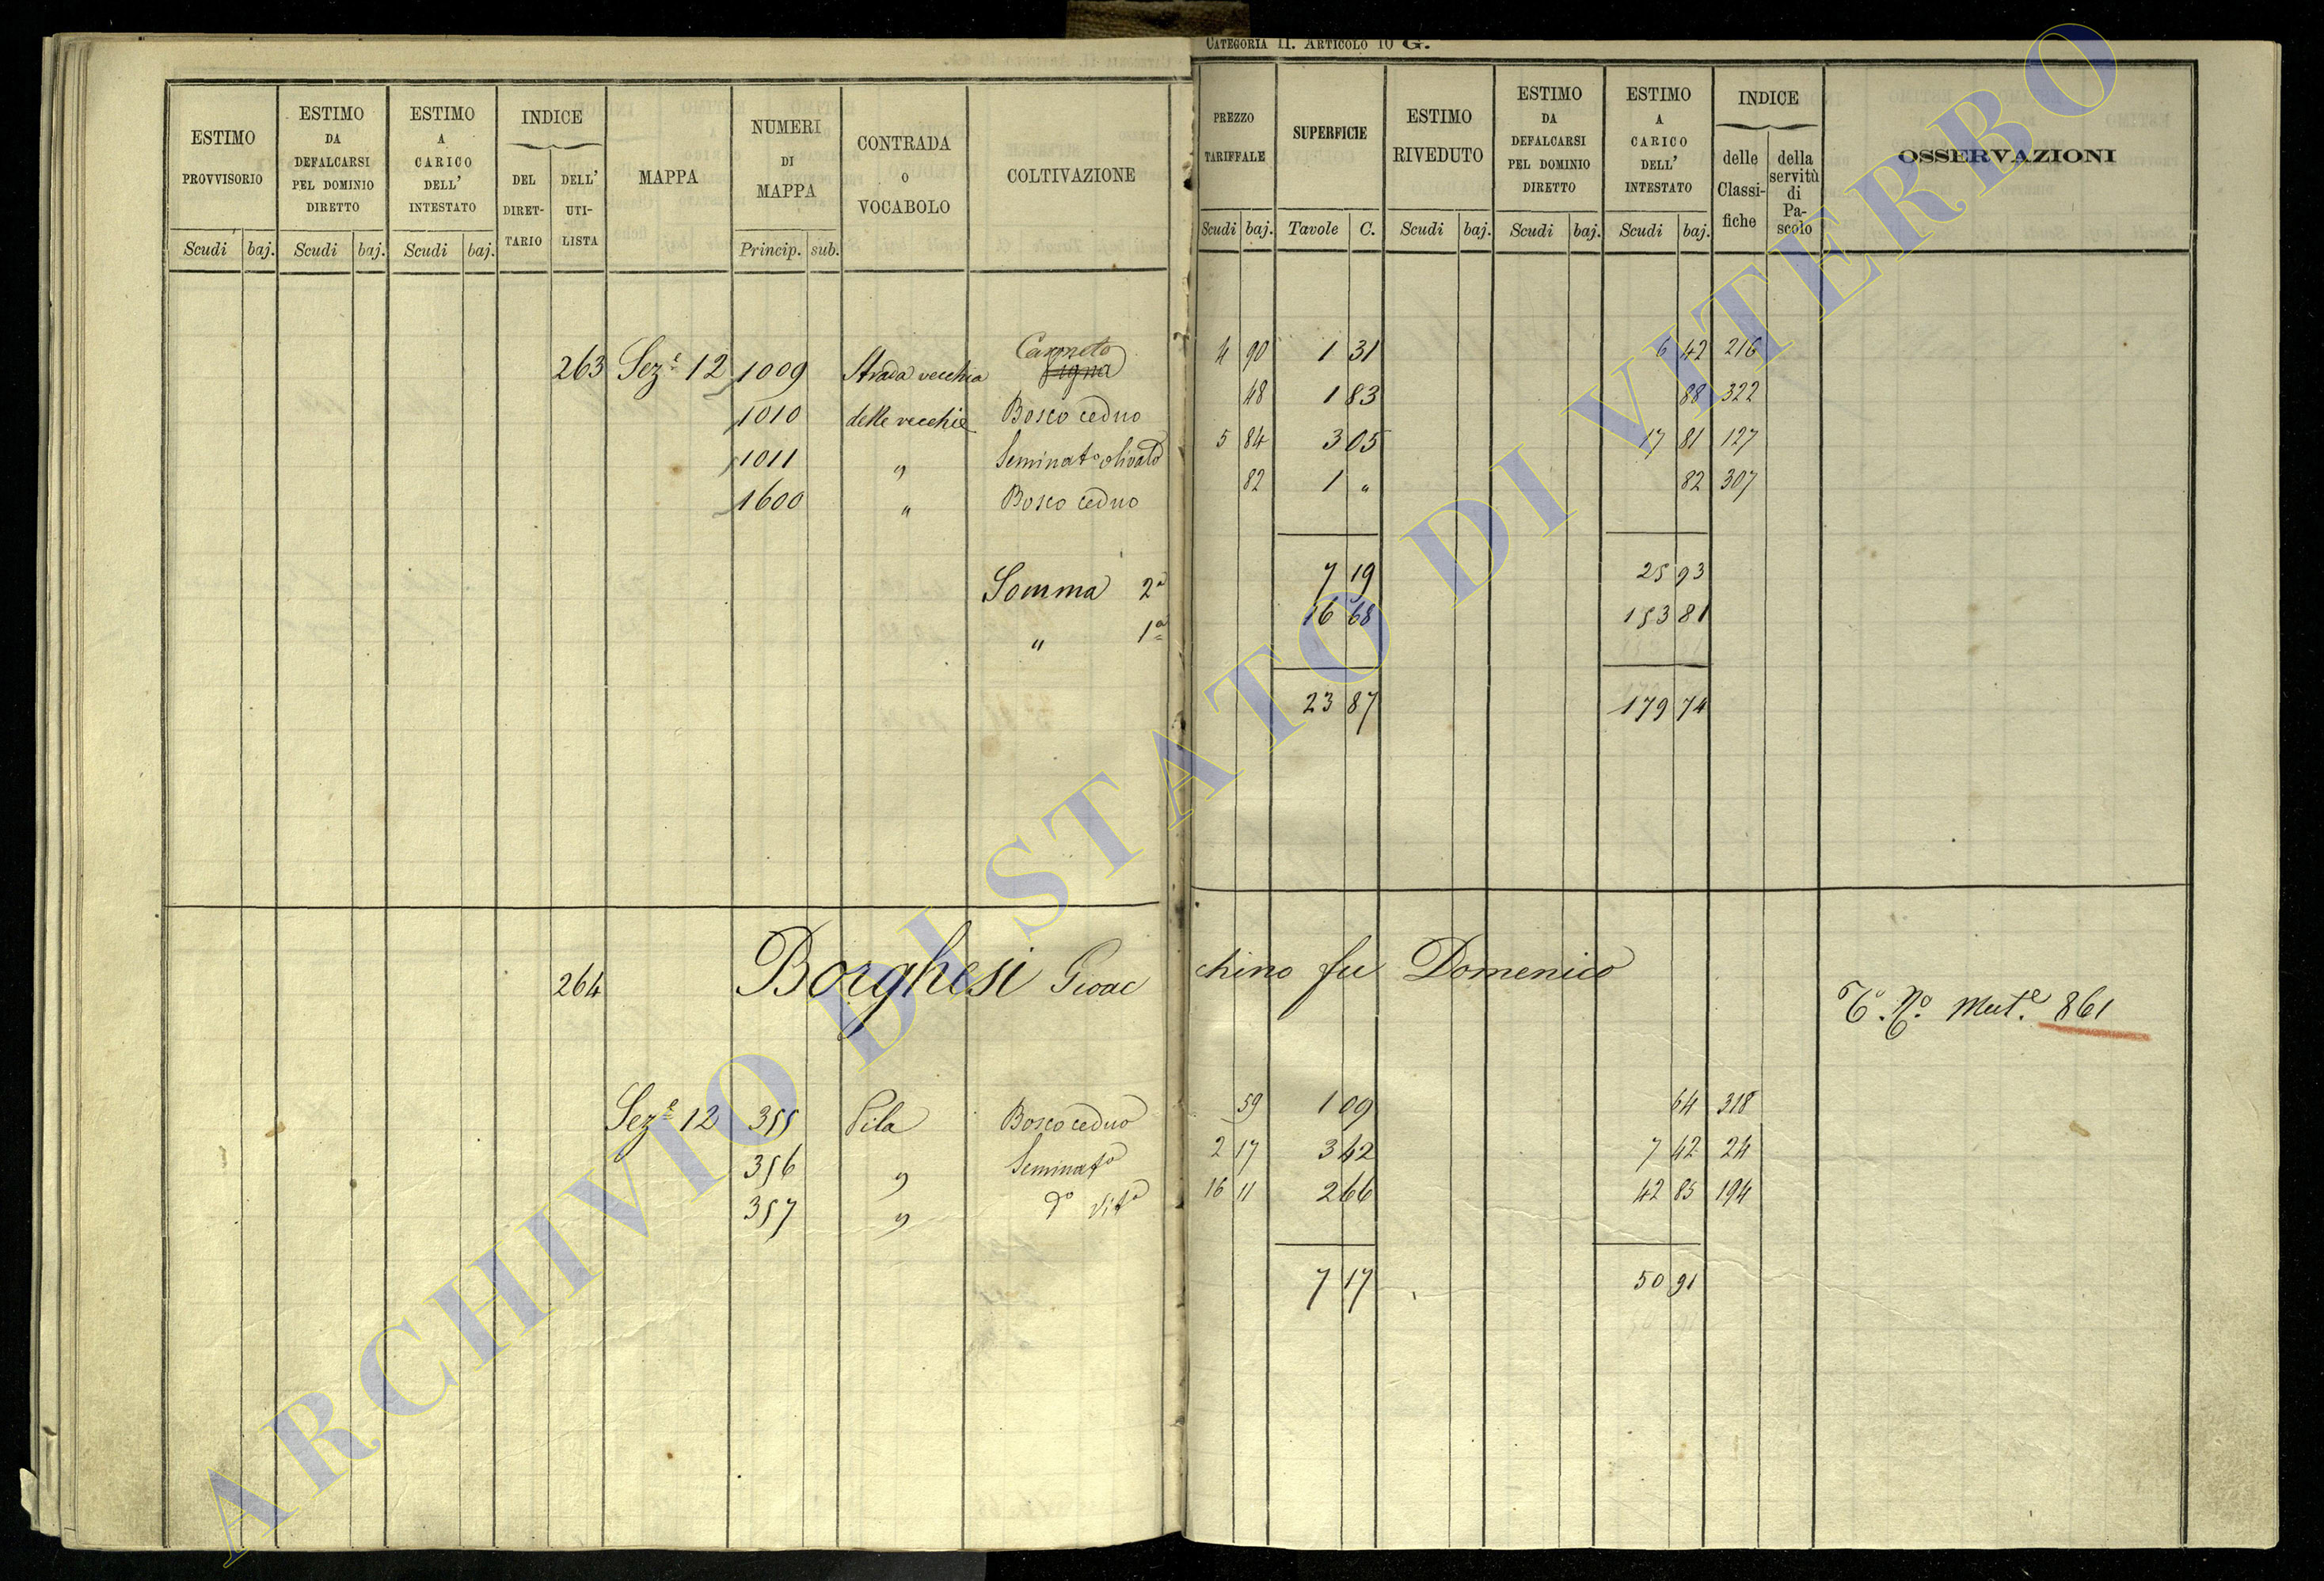 CATEGORIA II. ARTICOLO 10 G.
ESTIMO PROVVISORIO
ESTIMO DA DEFALCARSI PEL DOMINIO DIRETTO
ESTIMO A CARICO DELL' INTESTATO
INDICE
DEL DIRET-TARIO
DELL' UTI-LISTA
MAPPA
NUMERI DI MAPPA
CONTRADA O VOCABOLO
COLTIVAZIONE
PREZZO TARIFFALE
SUPERFICIE
ESTIMO RIVEDUTO
ESTIMO DA DEFALCARSI PEL DOMINIO DIRETTO
ESTIMO A CARICO DELL' INTESTATO
INDICE
delle Classi-fiche
della servitù di Pa-scolo
OSSERVAZIONI
Scudi baj. Scudi baj. Scudi baj. Princip. sub.
Scudi baj. Tavole C. Scudi baj. Scudi baj. Scudi baj.
Canneto
263 Sez.e 12 1009 Strada vecchia Vigna 4 90 1 31 6 42 216
1010 delle vecchie Bosco ceduo 48 1 83 88 322
1011 " Seminato olivato 5 84 3 05 17 81 127
1600 " Bosco ceduo 82 1 " 82 307
Somma 2a 7 19 25 93
" 1a 16 68 153 81
23 87 179 74
264 Borghesi Gioacchino fu Domenico
Mut.e 861
Sez.e 12 355 Pila Bosco ceduo 59 1 09 64 318
356 " Seminato 2 17 3 42 7 42 24
357 " do vito 16 11 2 66 42 85 194
7 17 50 91
ARCHIVIO DI STATO DI VITERBO